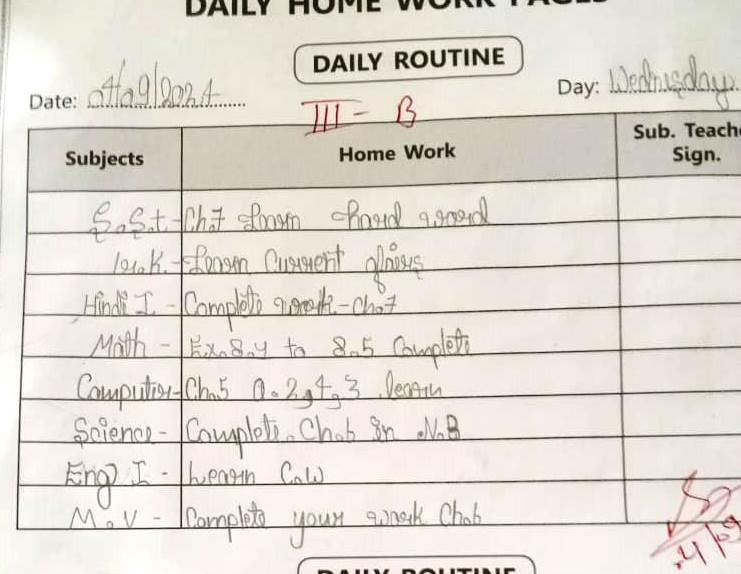 DAILY HOME WORK PAGES
DAILY ROUTINE
Date: 04/09/2024 Day: Wednesday
III - B
Subjects Home Work Sub. Teach Sign.
S.S.t - Ch.7 Learn hard word
G.K. - Learn Current affairs
Hindi I - Complete work - Ch.7
Math - Ex. 8.4 to 8.5 Complete
Computer - Ch.5 Q.2,4,3 learn
Science - Complete Ch.6 in N.B
Eng I - Learn C.W
M.V - Complete your work Ch.6
4/09
DAILY ROUTINE